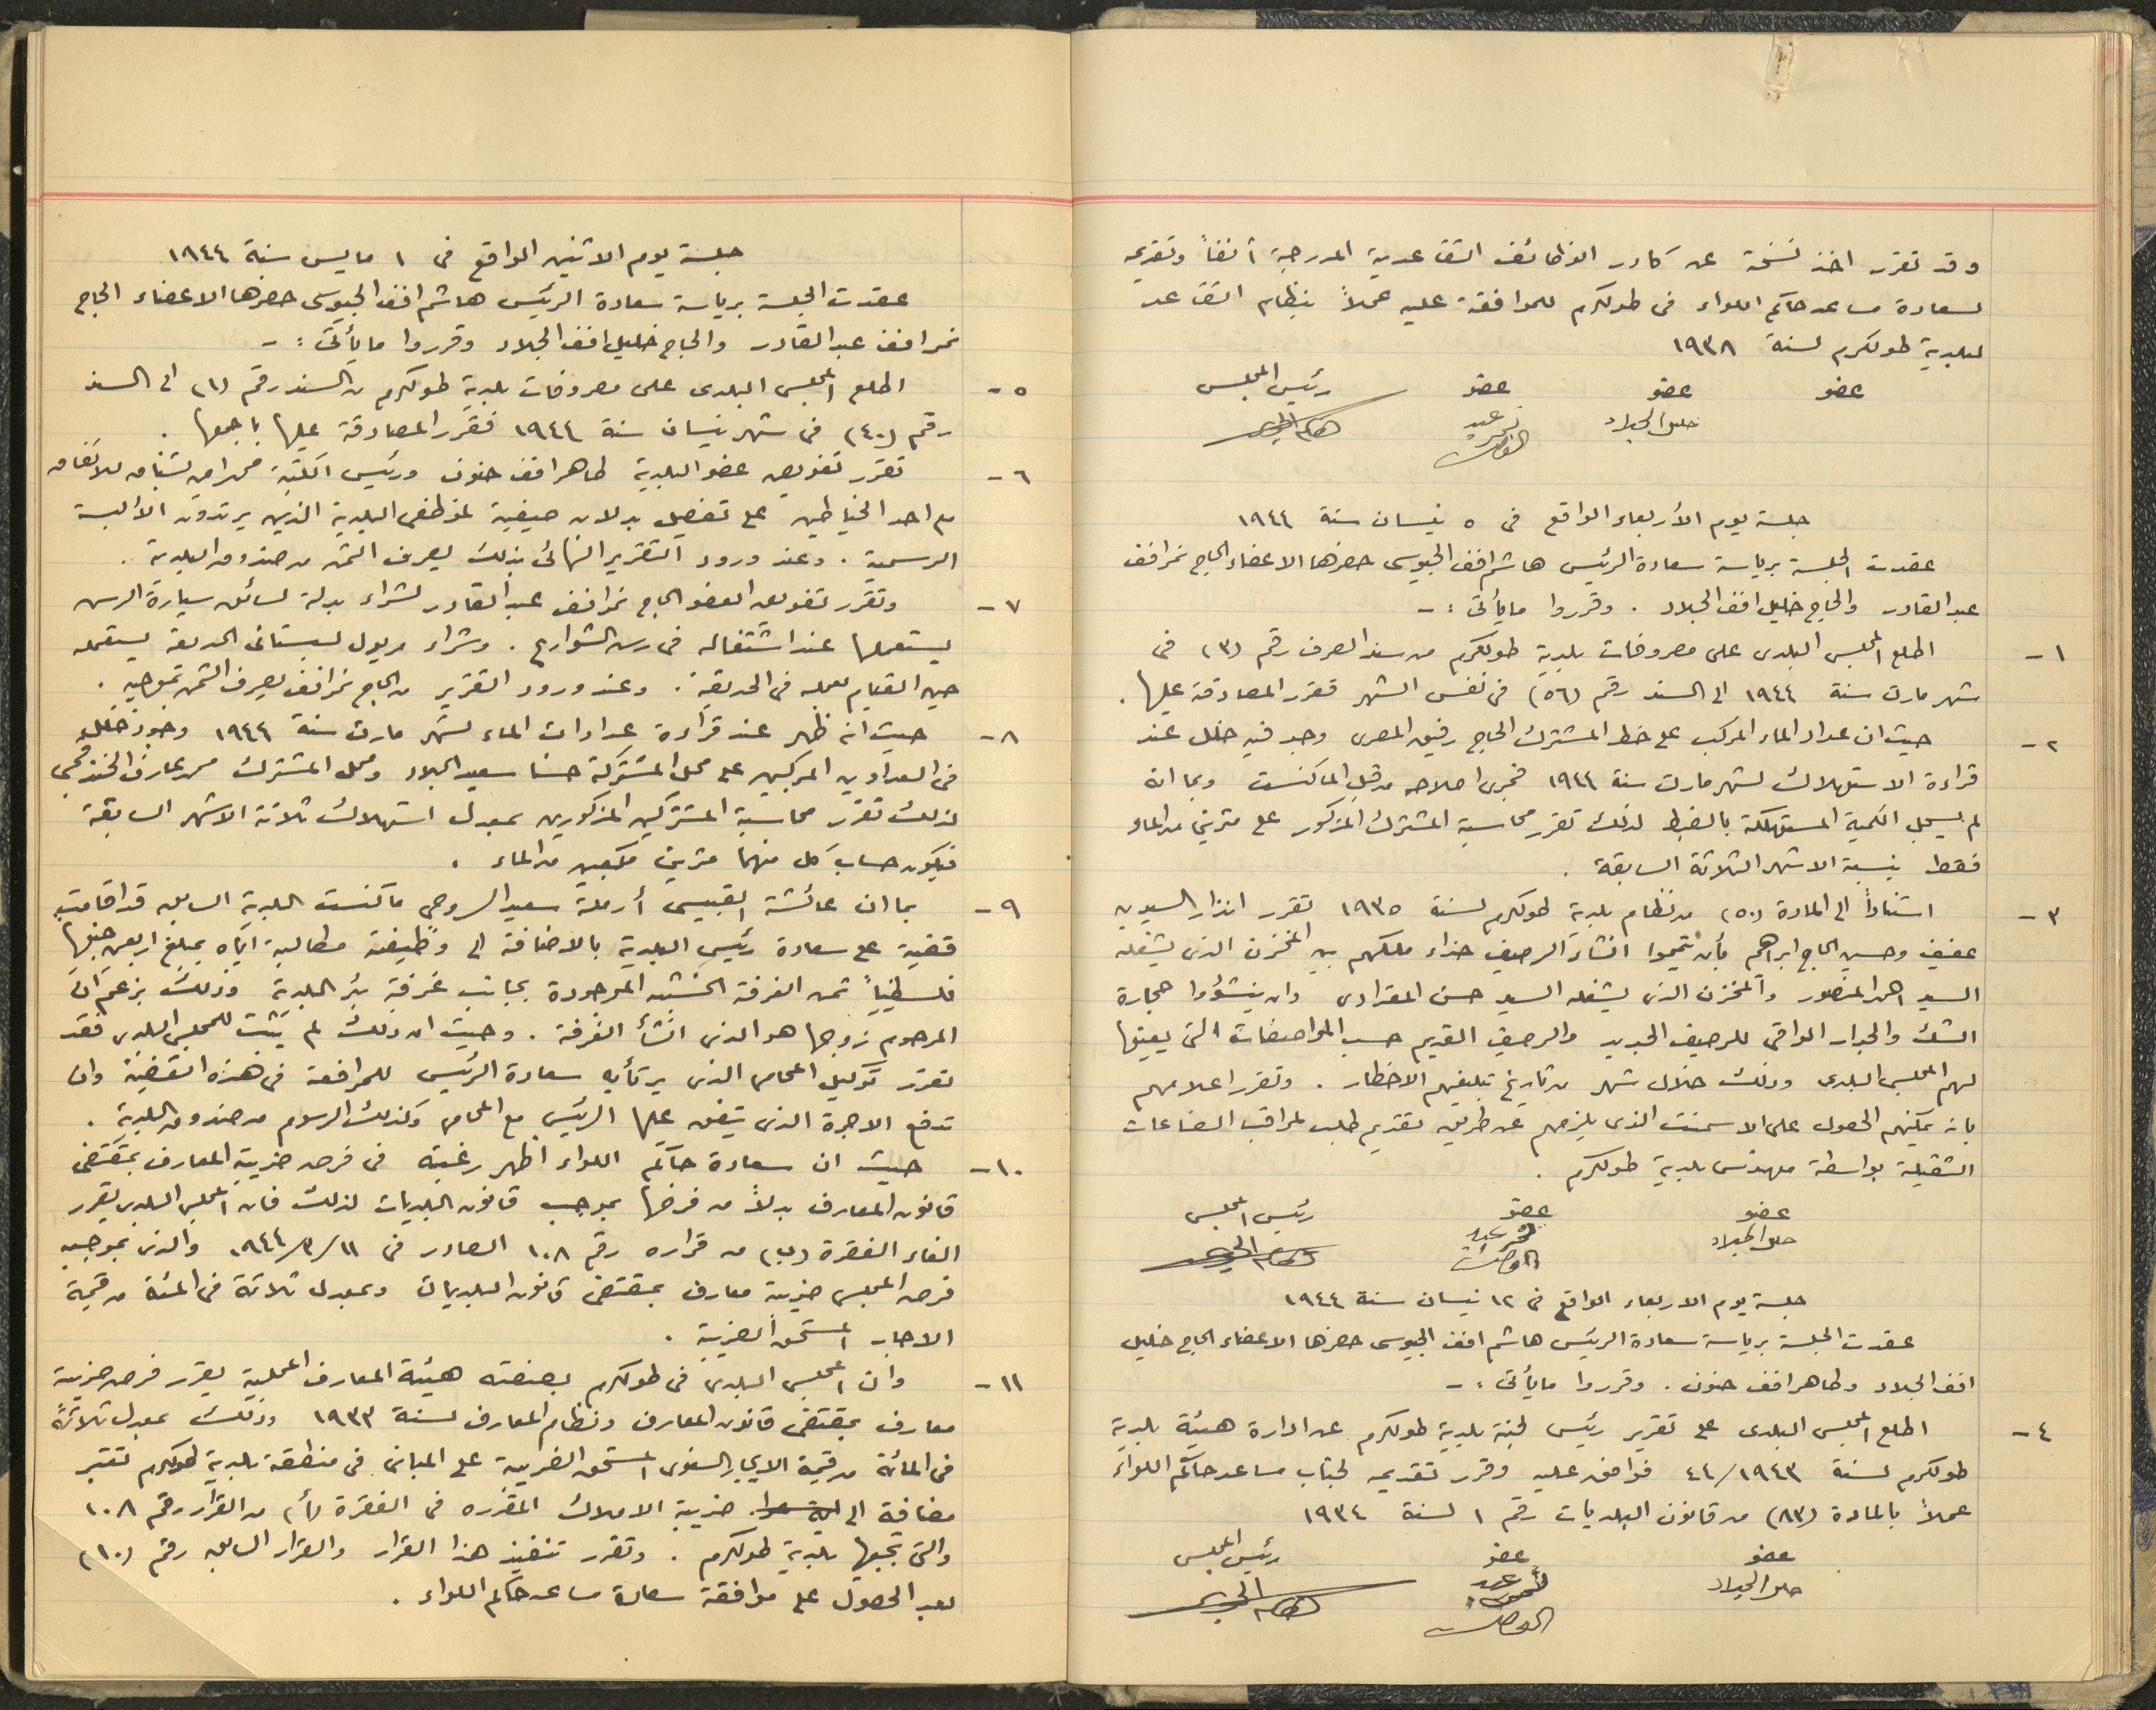 وقد تقرر اخذ نسخة عن كادر الوظائف التقاعدية المدرجة آنفاً وتقديمه
لسعادة مساعد حاكم اللواء في طولكرم للموافقة عليه عملاً بنظام التقاعد
لبلدية طولكرم لسنة ١٩٣٨
عضو عضو عضو رئيس المجلس
خليل الجلاد نمر عبد القادر هاشم الجيوسي
جلسة يوم الأربعاء الواقع في ٥ نيسان سنة ١٩٤٤
عقدت الجلسة برياسة سعادة الرئيس هاشم افند الجيوسي حضرها الاعضاء الحاج نمر افند
عبد القادر والحاج خليل افند الجلاد . وقرروا ما يأتي :-
١- اطلع المجلس البلدي على مصروفات بلدية طولكرم من سند الصرف رقم (٣) في
شهر مارت سنة ١٩٤٤ الى السند رقم (٥٦) في نفس الشهر فقرر المصادقة عليها .
٢- حيث ان عداد الماء المركب على خط المشترك الحاج رفيق المصري وجد فيه خلل عند
قراءة الاستهلاك لشهر مارت سنة ١٩٤٤ فجرى اصلاحه من قبل الماكنست وبما انه
لم يسجل الكمية المستهلكة بالضبط لذلك تقرر محاسبة المشترك المذكور على مترين من الماء
فقط بنسبة الاشهر الثلاثة السابقة .
٣- استناداً الى المادة (٥٠) من نظام بلدية طولكرم لسنة ١٩٣٥ تقرر انذار السيدين
عفيف وحسين الحاج ابراهيم بأن يتمموا انشاء الرصيف حذاء ملكهم بين المخزن الذي يشغله
السيد احمد المنصور والمخزن الذي يشغله السيد حسن المقدادي وان ينشؤوا حجارة
الشك والجدار الواقي للرصيف الجديد والرصيف القديم حسب المواصفات التي يعينها
لهم المجلس البلدي وذلك خلال شهر من تاريخ تبليغهم الاخطار . وتقرر اعلامهم
بانه يمكنهم الحصول على الاسمنت الذي يلزمهم عن طريق تقديم طلب لمراقب الصناعات
الثقيلة بواسطة مهندس بلدية طولكرم .
عضو عضو رئيس المجلس
خليل الجلاد نمر عبد القادر هاشم الجيوسي
جلسة يوم الاربعاء الواقع في ١٢ نيسان سنة ١٩٤٤
عقدت الجلسة برياسة سعادة الرئيس هاشم افند الجيوسي حضرها الاعضاء الحاج خليل
افند الجلاد وطاهر افند حنون . وقرروا ما يأتي :-
٤- اطلع المجلس البلدي على تقرير رئيس لجنة بلدية طولكرم عن ادارة هيئة بلدية
طولكرم لسنة ١٩٤٣/٤٤ فوافق عليه وقرر تقديمه لجناب مساعد حاكم اللواء
عملاً بالمادة (٨٣) من قانون البلديات رقم ١ لسنة ١٩٣٤
عضو عضو رئيس المجلس
خليل الجلاد نمر عبد القادر هاشم الجيوسي
جلسة يوم الاثنين الواقع في ١ مايس سنة ١٩٤٤
عقدت الجلسة برياسة سعادة الرئيس هاشم افند الجيوسي حضرها الاعضاء الحاج
نمر افند عبد القادر والحاج خليل افند الجلاد وقرروا ما يأتي :-
٥- اطلع المجلس البلدي على مصروفات بلدية طولكرم من السند رقم (١) الى السند
رقم (٤٠) في شهر نيسان سنة ١٩٤٤ فقرر المصادقة عليها باجمعها .
٦- تقرر تفويض عضو البلدية طاهر افند حنون ورئيس الكتبة للاتفاق
مع احد الخياطين على تفصيل بدلات صيفية لموظفي البلدية الذين يرتدون الألبسة
الرسمية . وعند ورود التقرير النهائي بذلك يصرف الثمن من صندوق البلدية .
٧- وتقرر تفويض العضو الحاج نمر افند عبد القادر لشراء بدلة لسائق سيارة الرش
يستعملها عند اشتغاله في رش الشوارع . وشراء مريول لبستاني الحديقة يستعمله
حين القيام بعمله في الحديقة . وعند ورود التقرير من الحاج نمر افند يصرف الثمن بموجبه .
٨- حيث انه ظهر عند قراءة عدادات الماء لشهر مارت سنة ١٩٤٤ وجود خلل
في العدادين المركبين على محل المشتركة حسنا سعيد الجلاد ومحل المشترك محمد عارف الخندقجي
لذلك تقرر محاسبة المشتركين المذكورين بمعدل استهلاك ثلاثة الاشهر السابقة
فيكون حساب كل منهما مترين مكعبين من الماء .
٩- بما ان عائشة القبيسي أرملة سعيد السروجي ماكنست البلدية السابق قد اقامت
قضية على سعادة رئيس البلدية بالاضافة الى وظيفته مطالبة اياه بمبلغ اربعين جنيهاً
فلسطينياً ثمن الغرفة الخشبية الموجودة بجانب غرفة بئر البلدية وذلك بزعم ان
المرحوم زوجها هو الذي انشأ الغرفة . وحيث ان ذلك لم يثبت للمجلس البلدي فقد
تقرر توكيل المحامي الذي يرتأيه سعادة الرئيس للمرافعة في هذه القضية وان
تدفع الاجرة الذي يتفق عليها الرئيس مع المحامي وكذلك الرسوم من صندوق البلدية .
١٠- حيث ان سعادة حاكم اللواء اظهر رغبته في فرض ضريبة المعارف بمقتضى
قانون المعارف بدلاً من فرضها بموجب قانون البلديات لذلك فان المجلس البلدي يقرر
الغاء الفقرة (ب) من قراره رقم ١٠٨ الصادر في ١١/٣/١٩٤٤ والذي بموجبه
فرض المجلس ضريبة معارف بمقتضى قانون البلديات وبمعدل ثلاثة في المئة من قيمة
الايجار المستحق الضريبة .
١١- وان المجلس البلدي في طولكرم بصفته هيئة المعارف المحلية يقرر فرض ضريبة
معارف بمقتضى قانون المعارف ونظام المعارف لسنة ١٩٣٣ وذلك بمعدل ثلاثة
في المائة من قيمة الايجار السنوي المستحق الضريبة على المباني في منطقة بلدية طولكرم تعتبر
مضافة الى ضريبة الاملاك المقرره في الفقرة (أ) من القرار رقم ١٠٨
والتي تجبيها بلدية طولكرم . وتقرر تنفيذ هذا القرار والقرار السابق رقم (١٠)
بعد الحصول على موافقة سعادة مساعد حاكم اللواء .